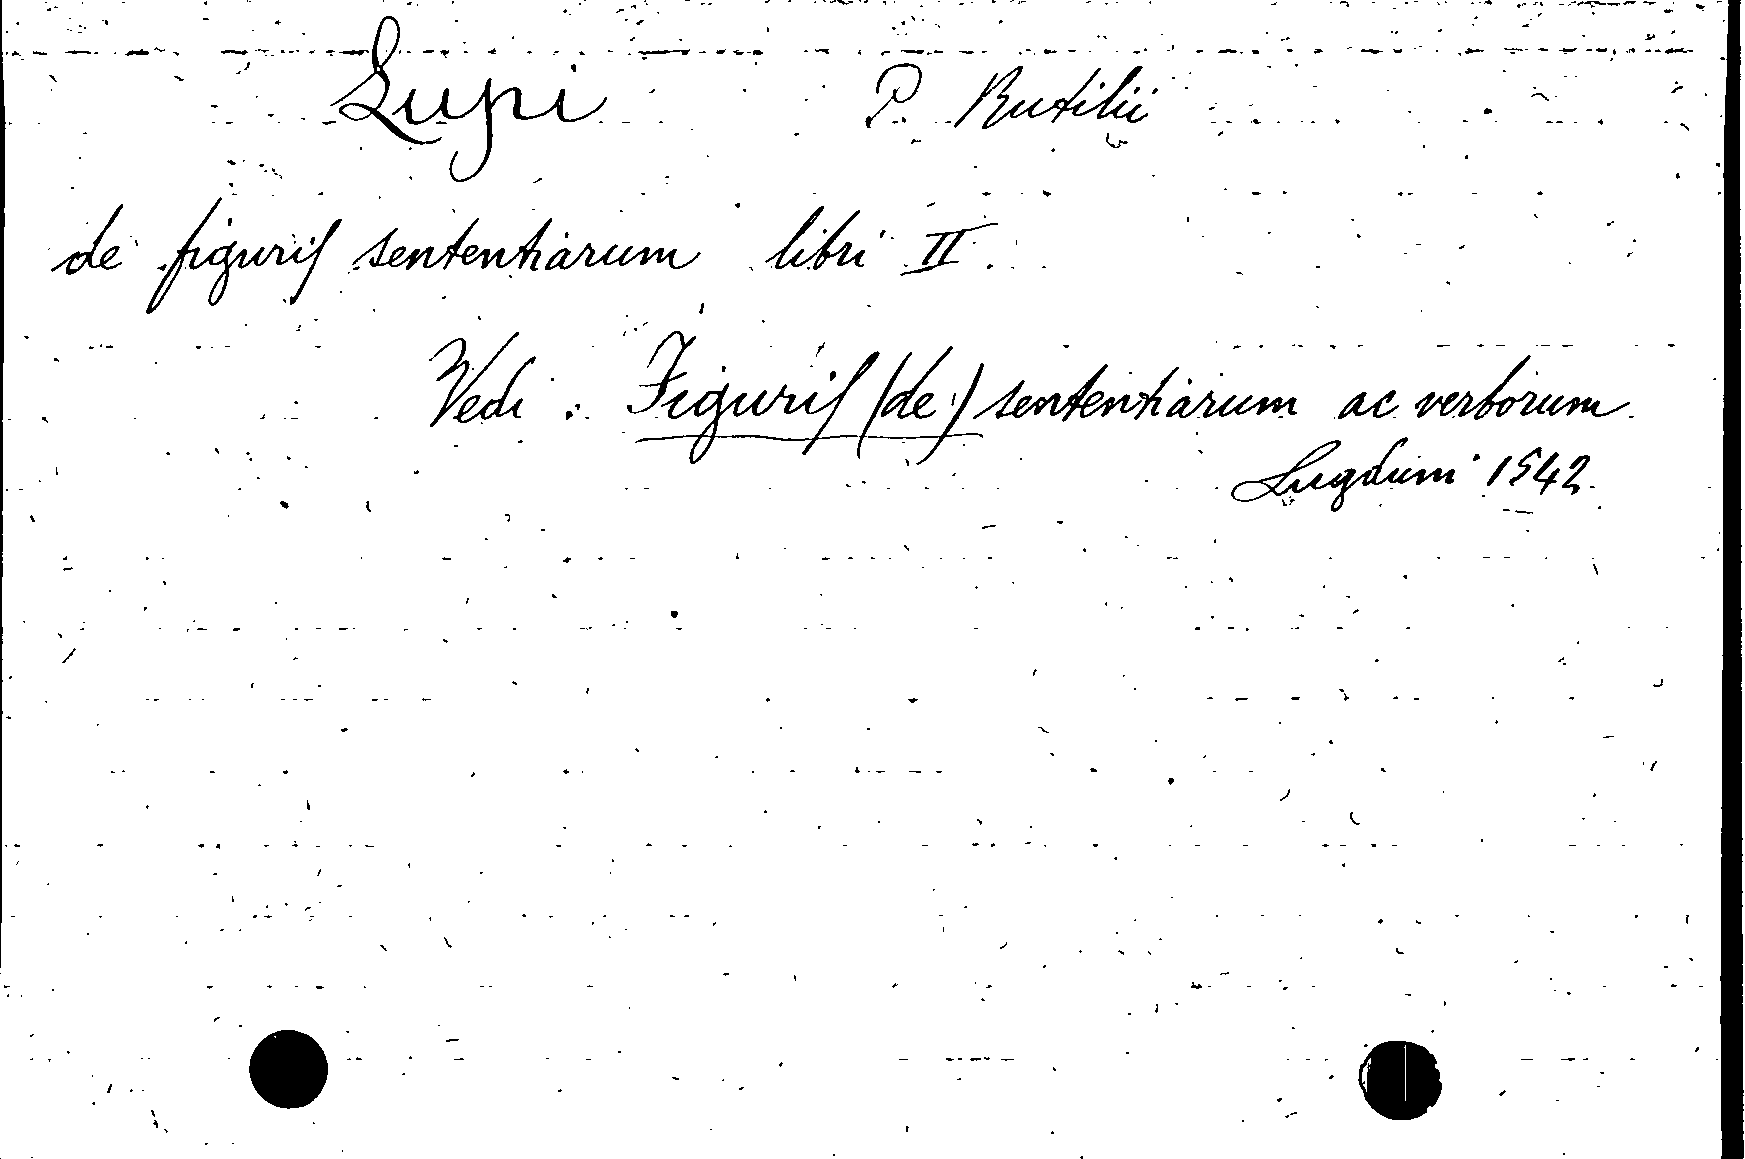 Lupi P. Rutilii
de figuris sententiarum libri II.
Vedi: Figuris (de) sententiarum ac verborum
Lugduni 1542.